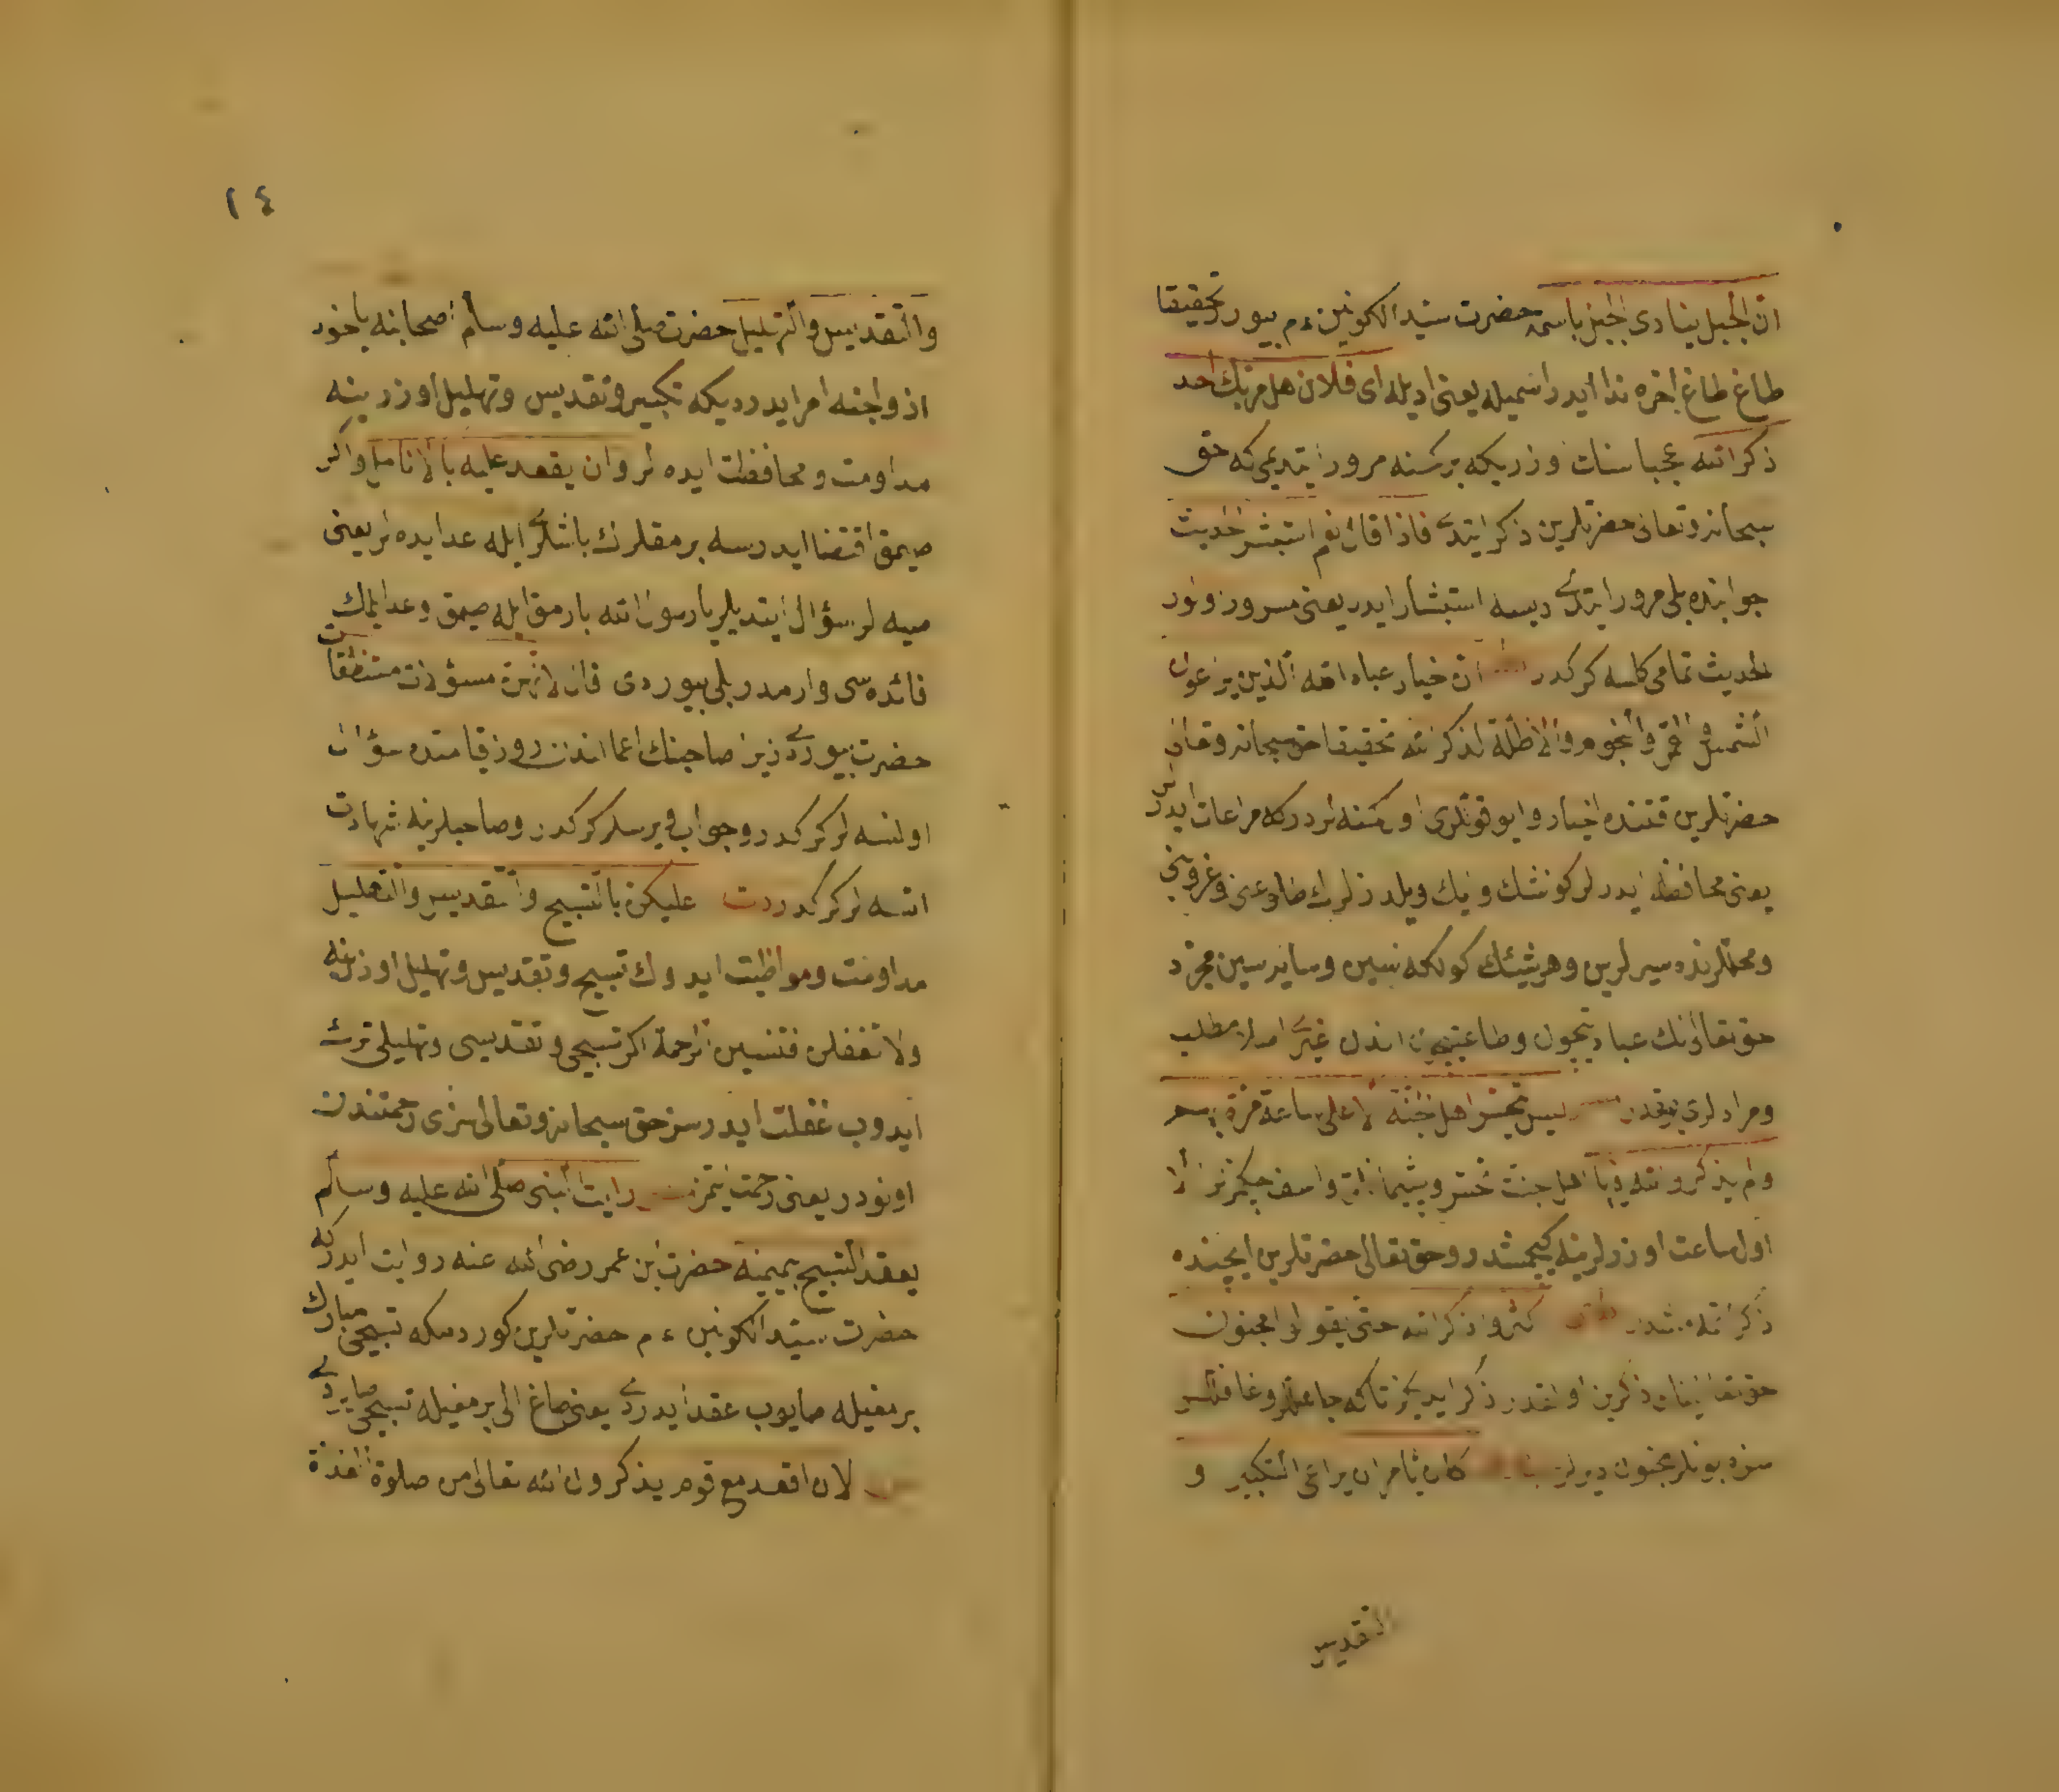 ان الجبل ينادى الجبل باسمه حضرت سيد الكونين ءم بيورر تحقيقا
طاغ طاغ اخره ندا ايدر اسميله يعنى اديله اى فلان هل مر بك احد
ذكر الله عجبا سنك وزريكه بر كسنه مرور ايتديمى كه حق
سبحانه وتعالى حضرتلرين ذكر ايتدى فاذا قال نعم استبشر الحديث
جوابنده بلى مرور ايتدى ديسه استبشار ايدر يعنى مسرور اولور
الحديث تمامى كلسه كركدر ان خيار عباد الله الذين يراعون
الشمس والقمر والنجوم والاظلة لذكر الله تحقيقا حق سبحانه وتعالى
حضرتلرين قتنده اخيار وايو قوللرى اول كمسنه لردركه مراعات ايدرلر
يعنى محافظه ايدرلر كونشك وايك ويلدزلرك طلوعنى وغروبنى
ومحللرنده سيرلرين وهر شيئك كولكه سين وسايه سين مجرد
حق تعالى نك عبادتيچون وطاعتيچون اندن غيرى اصلا مطلب
ومرادلرى يوقدر ليس يتحسر اهل الجنة الا على ساعة مرت بهم
ولم يذكروا الله فيها اهل جنت تحسر وپشيمانلق واسف چكمزلر الا
اول ساعت اوزرلرينه كچمشدر وحق تعالى حضرتلرين ايچنده
ذكر اتمه مشلر اكثروا ذكر الله حتى يقولوا مجنون
حق تعالى نك ذكرين اول قدر ذكر ايديكز تاكه جاهللر وغافللر
سزه بونلر مجنون ديرلر كان يأمر ان يراعى التكبير و
التقديس
١٤
والتقديس والتهليل حضرت صلى الله عليه وسلم اصحابنه ياخود
ازواجنه امر ايدرديكه تكبير وتقديس وتهليل اوزرينه
مداومت ومحافظت ايده لر وان يعقد عليه بالانامل واكر
صيمق اقتضا ايدرسه برمقلرك باشلرى ايله عد ايده لر يعنى
صيه لر سؤال ايتديلر يا رسول الله بارمق ايله صيمق وعد ايلمك
فائده سى وارمدر بلى بيوردى فانهن مسؤلات مستنطقات
حضرت بيوردى زيرا صاحبنك اعمالندن روز قيامتده سؤال
اولنسه لر كركدر وجواب ويرسلر كركدر وصاحبلرينه شهادت
اتسه لر كركدر عليكن بالتسبيح والتقديس والتهليل
مداومت ومواظبت ايدوك تسبيح وتقديس وتهليل اوزرينه
ولا تغفلن فتنسين الرحمة اكر تسبيحى وتقديسى وتهليلى ترك
ايدوب غفلت ايدرسز حق سبحانه وتعالى سزى رحمتندن
اونودر يعنى رحمت ايتمز رايت النبى صلى الله عليه وسلم
يعقد التسبيح بيمينه حضرت ابن عمر رضى الله عنه روايت ايدركه
حضرت سيد الكونين ءم حضرتلرين كوردمكه تسبيحى مبارك
برمغيله صايوب عقد ايدردى يعنى صاغ الى برمغيله تسبيحى صايردى
لان اقعد مع قوم يذكرون الله تعالى من صلوة الغداة